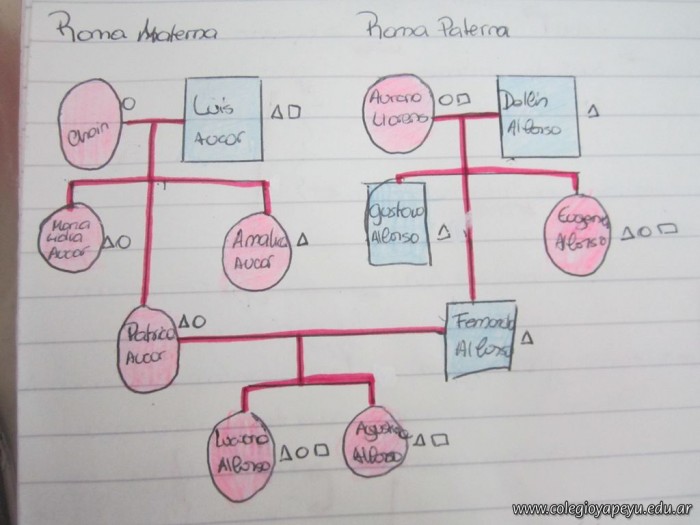 Rama Materna
Rama Paterna
Luis
Aucar
Llorens
Alfonso
Maria
Lidia
Aucar
Amalia
Aucar
Gustavo
Alfonso
Eugenia
Alfonso
Aucar
Fernando
Alfonso
Alfonso
Alfonso
www.colegioyapeyu.edu.ar